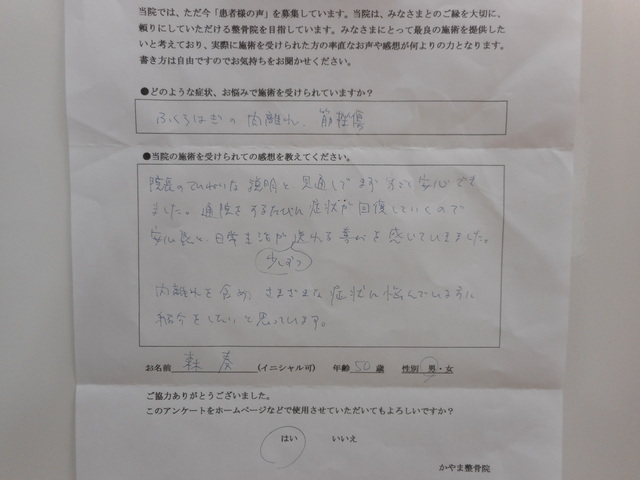 当院では、ただ今「患者様の声」を募集しています。当院は、みなさまとのご縁を大切に、
頼りにしていただける整骨院を目指しています。みなさまにとって最良の施術を提供した
いと考えており、実際に施術を受けられた方の率直なお声や感想が何よりの力となります。
書き方は自由ですのでお気持ちをお聞かせください。
●どのような症状、お悩みで施術を受けられていますか？
ふくらはぎの肉離れ、筋挫傷
●当院の施術を受けられての感想を教えてください。
院長のていねいな説明と見通しでまずすごく安心でき
ました。通院をするたびに症状が回復していくので
安心感と、日常生活が送れる喜びを感じていました。
少しずつ
肉離れを含め、さまざまな症状に悩んでいる方に
紹介をしたいと思っています。
お名前 森 (イニシャル可) 年齢 50 歳 性別 男・女
ご協力ありがとうございました。
このアンケートをホームページなどで使用させていただいてもよろしいですか？
はい いいえ
かやま整骨院